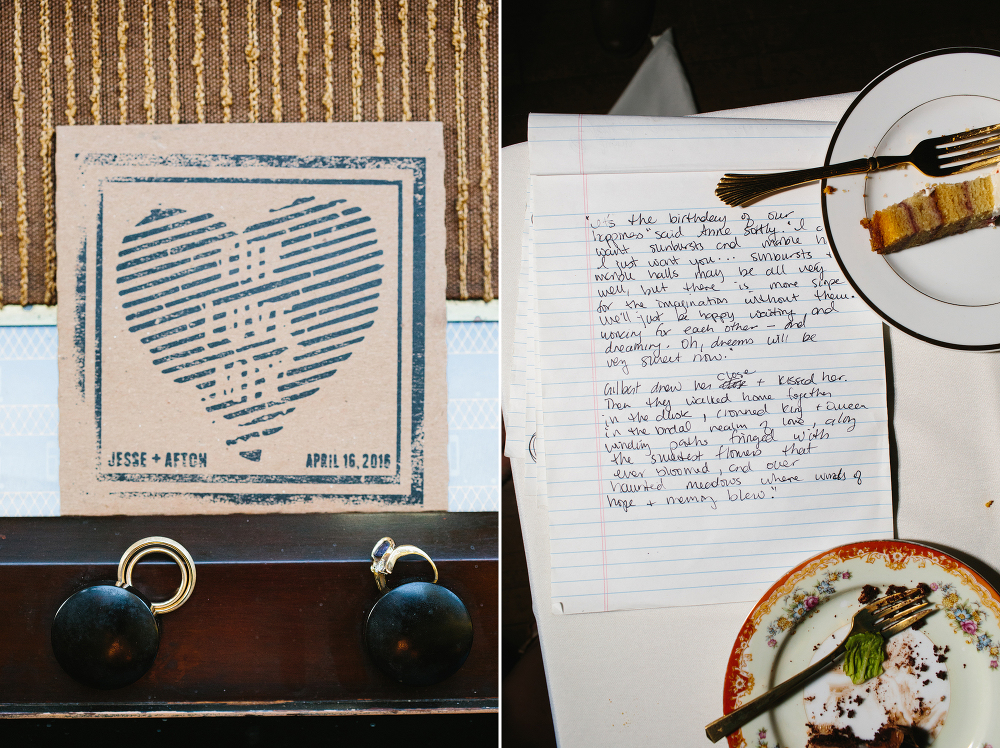 JESSE + AFTON
APRIL 16, 2016
"It's the birthday of our
happiness" said Anne softly. "I
want sunbursts and marble
I just want you... sunbursts +
marble halls may be all very
well, but there is more scope
for the imagination without them.
We'll just be happy waiting and
working for each other - and
dreaming. Oh, dreams will be
very sweet now."
Gilbert drew her close + kissed her.
Then they walked home together
in the dusk, crowned King + Queen
in the bridal realm of love, along
winding paths fringed with
the sweetest flowers that
ever bloomed, and over
haunted meadows where winds of
hope + memory blew."